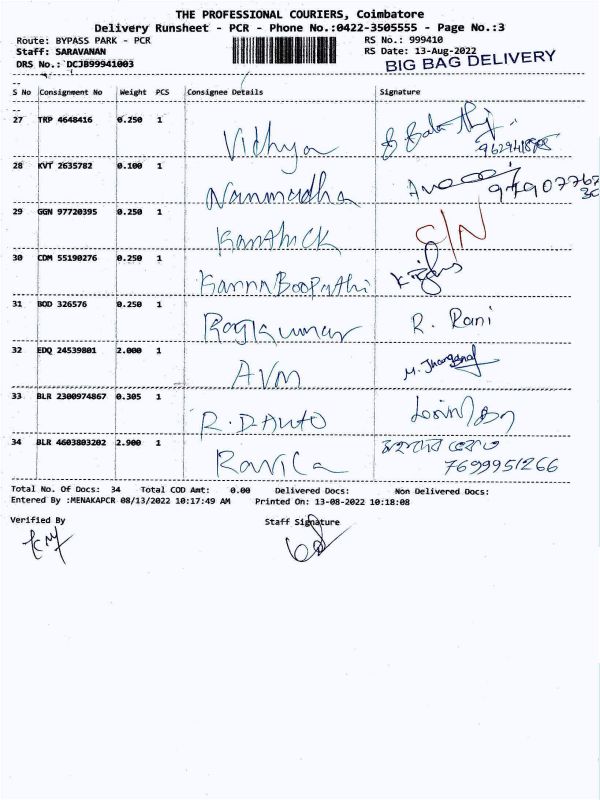 THE PROFESSIONAL COURIERS, Coimbatore
Delivery Runsheet - PCR - Phone No.:0422-3505555 - Page No.:3
Route: BYPASS PARK - PCR RS No.: 999410
Staff: SARAVANAN RS Date: 13-Aug-2022
DRS No.: DCJB99941003 BIG BAG DELIVERY
S No Consignment No Weight PCS Consignee Details Signature
27 TRP 4648416 0.250 1 Vidhya
28 KVT 2635782 0.100 1
29 GGN 97720395 0.250 1 Kanthick C/N
30 CDM 55190276 0.250 1 Kanna Boopathi
31 BOD 326576 0.250 1 Rajkumar R. Rani
32 EDQ 24539801 2.000 1 AVM
33 BLR 2300974867 0.305 1 R.D Auto
34 BLR 4603803202 2.900 1
7699951266
Total No. Of Docs: 34 Total COD Amt: 0.00 Delivered Docs: Non Delivered Docs:
Entered By :MENAKAPCR 08/13/2022 10:17:49 AM Printed On: 13-08-2022 10:18:08
Verified By Staff Signature